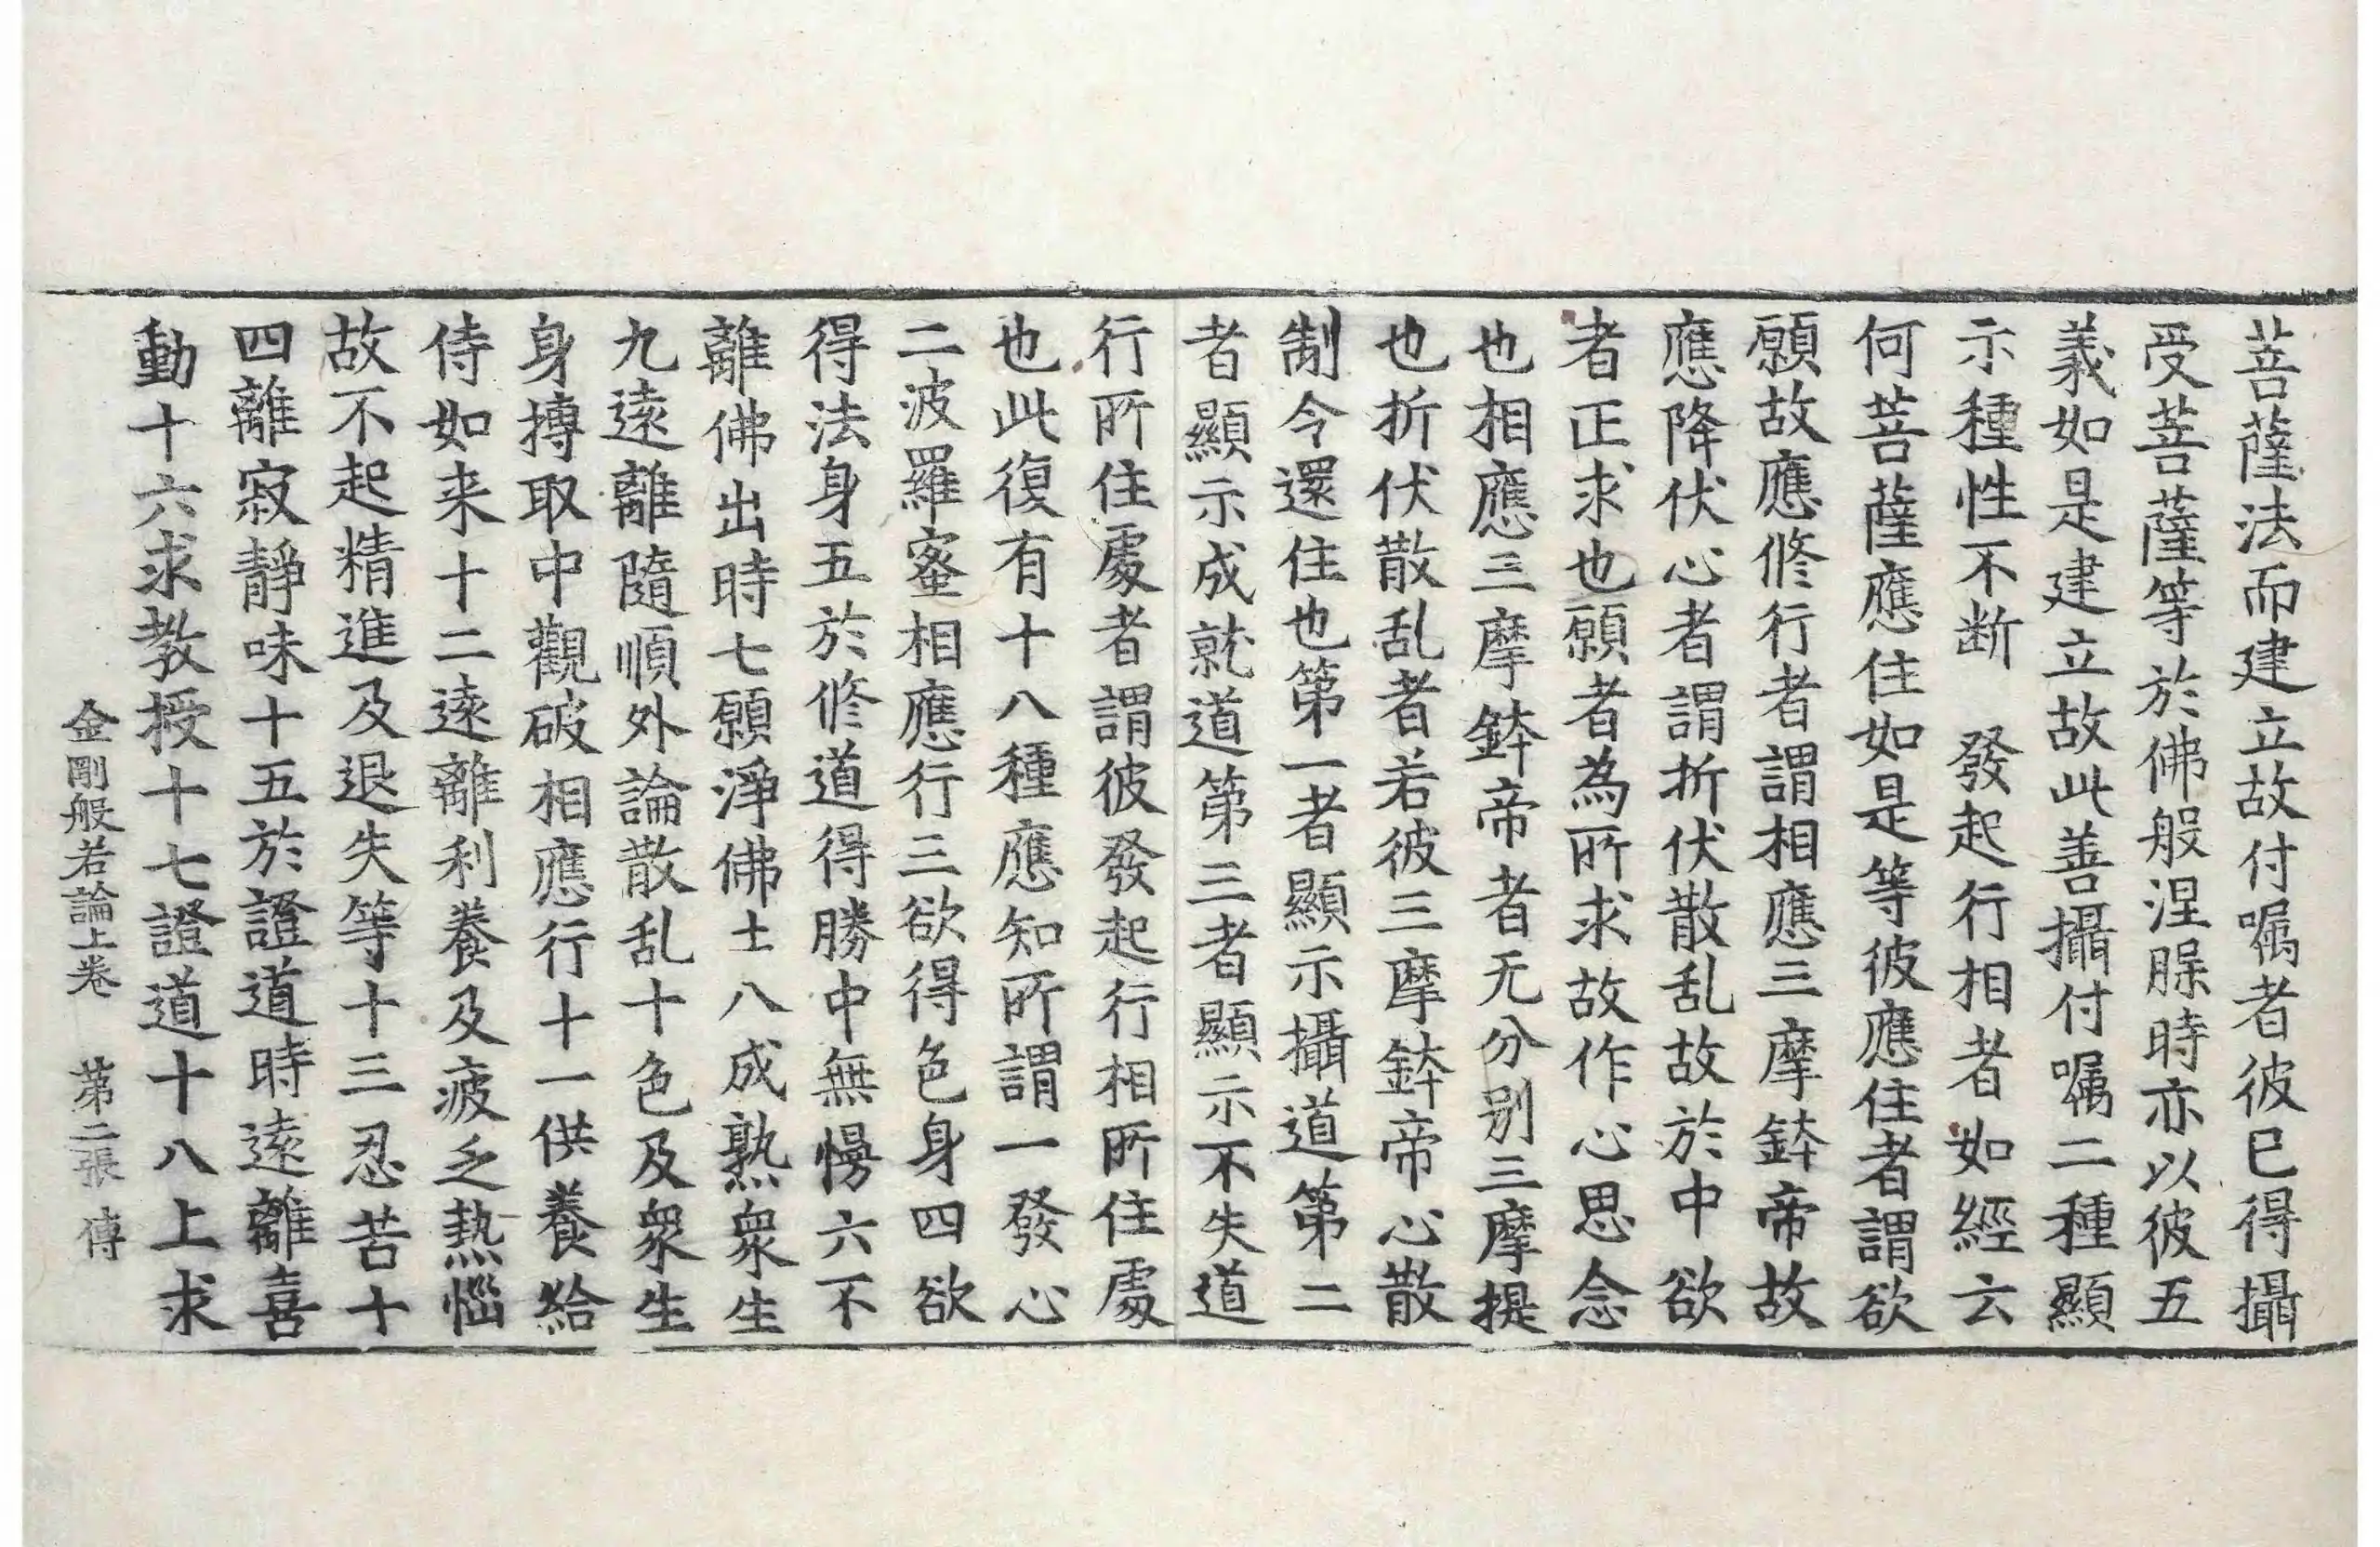 菩薩法而建立故付嘱者彼已得攝
受菩薩等於佛般涅腂時亦以彼五
義如是建立故此善攝付嘱二種顯
示種性不断　發起行相者如經云
何菩薩應住如是等彼應住者謂欲
願故應修行者謂相應三摩鉢帝故
應降伏心者謂折伏散乱故於中欲
者正求也願者為所求故作心思念
也相應三摩鉢帝者无分别三摩提
也折伏散乱者若彼三摩鉢帝心散
制令還住也第一者顯示攝道第二
者顯示成就道第三者顯示不失道
行所住處者謂彼發起行相所住處
也此復有十八種應知所謂一發心
二波羅蜜相應行三欲得色身四欲
得法身五於修道得勝中無慢六不
離佛出時七願淨佛土八成熟衆生
九遠離隨順外論散乱十色及衆生
身摶取中觀破相應行十一供養給
侍如来十二遠離利養及疲乏熱惱
故不起精進及退失等十三忍苦十
四離寂靜味十五於證道時遠離喜
動十六求教授十七證道十八上求
金剛般若論上卷　第二張　傳